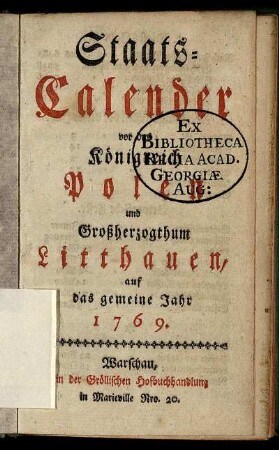 Staats=
Calender
vor das
Königreich
Polen
und
Großherzogthum
Litthauen,
auf
das gemeine Jahr
1769.
Warschau,
in der Gröllischen Hofbuchhandlung
in Marieville Nro. 20.
EX
BIBLIOTHECA
REGIA ACAD.
GEORGIÆ
AUG: